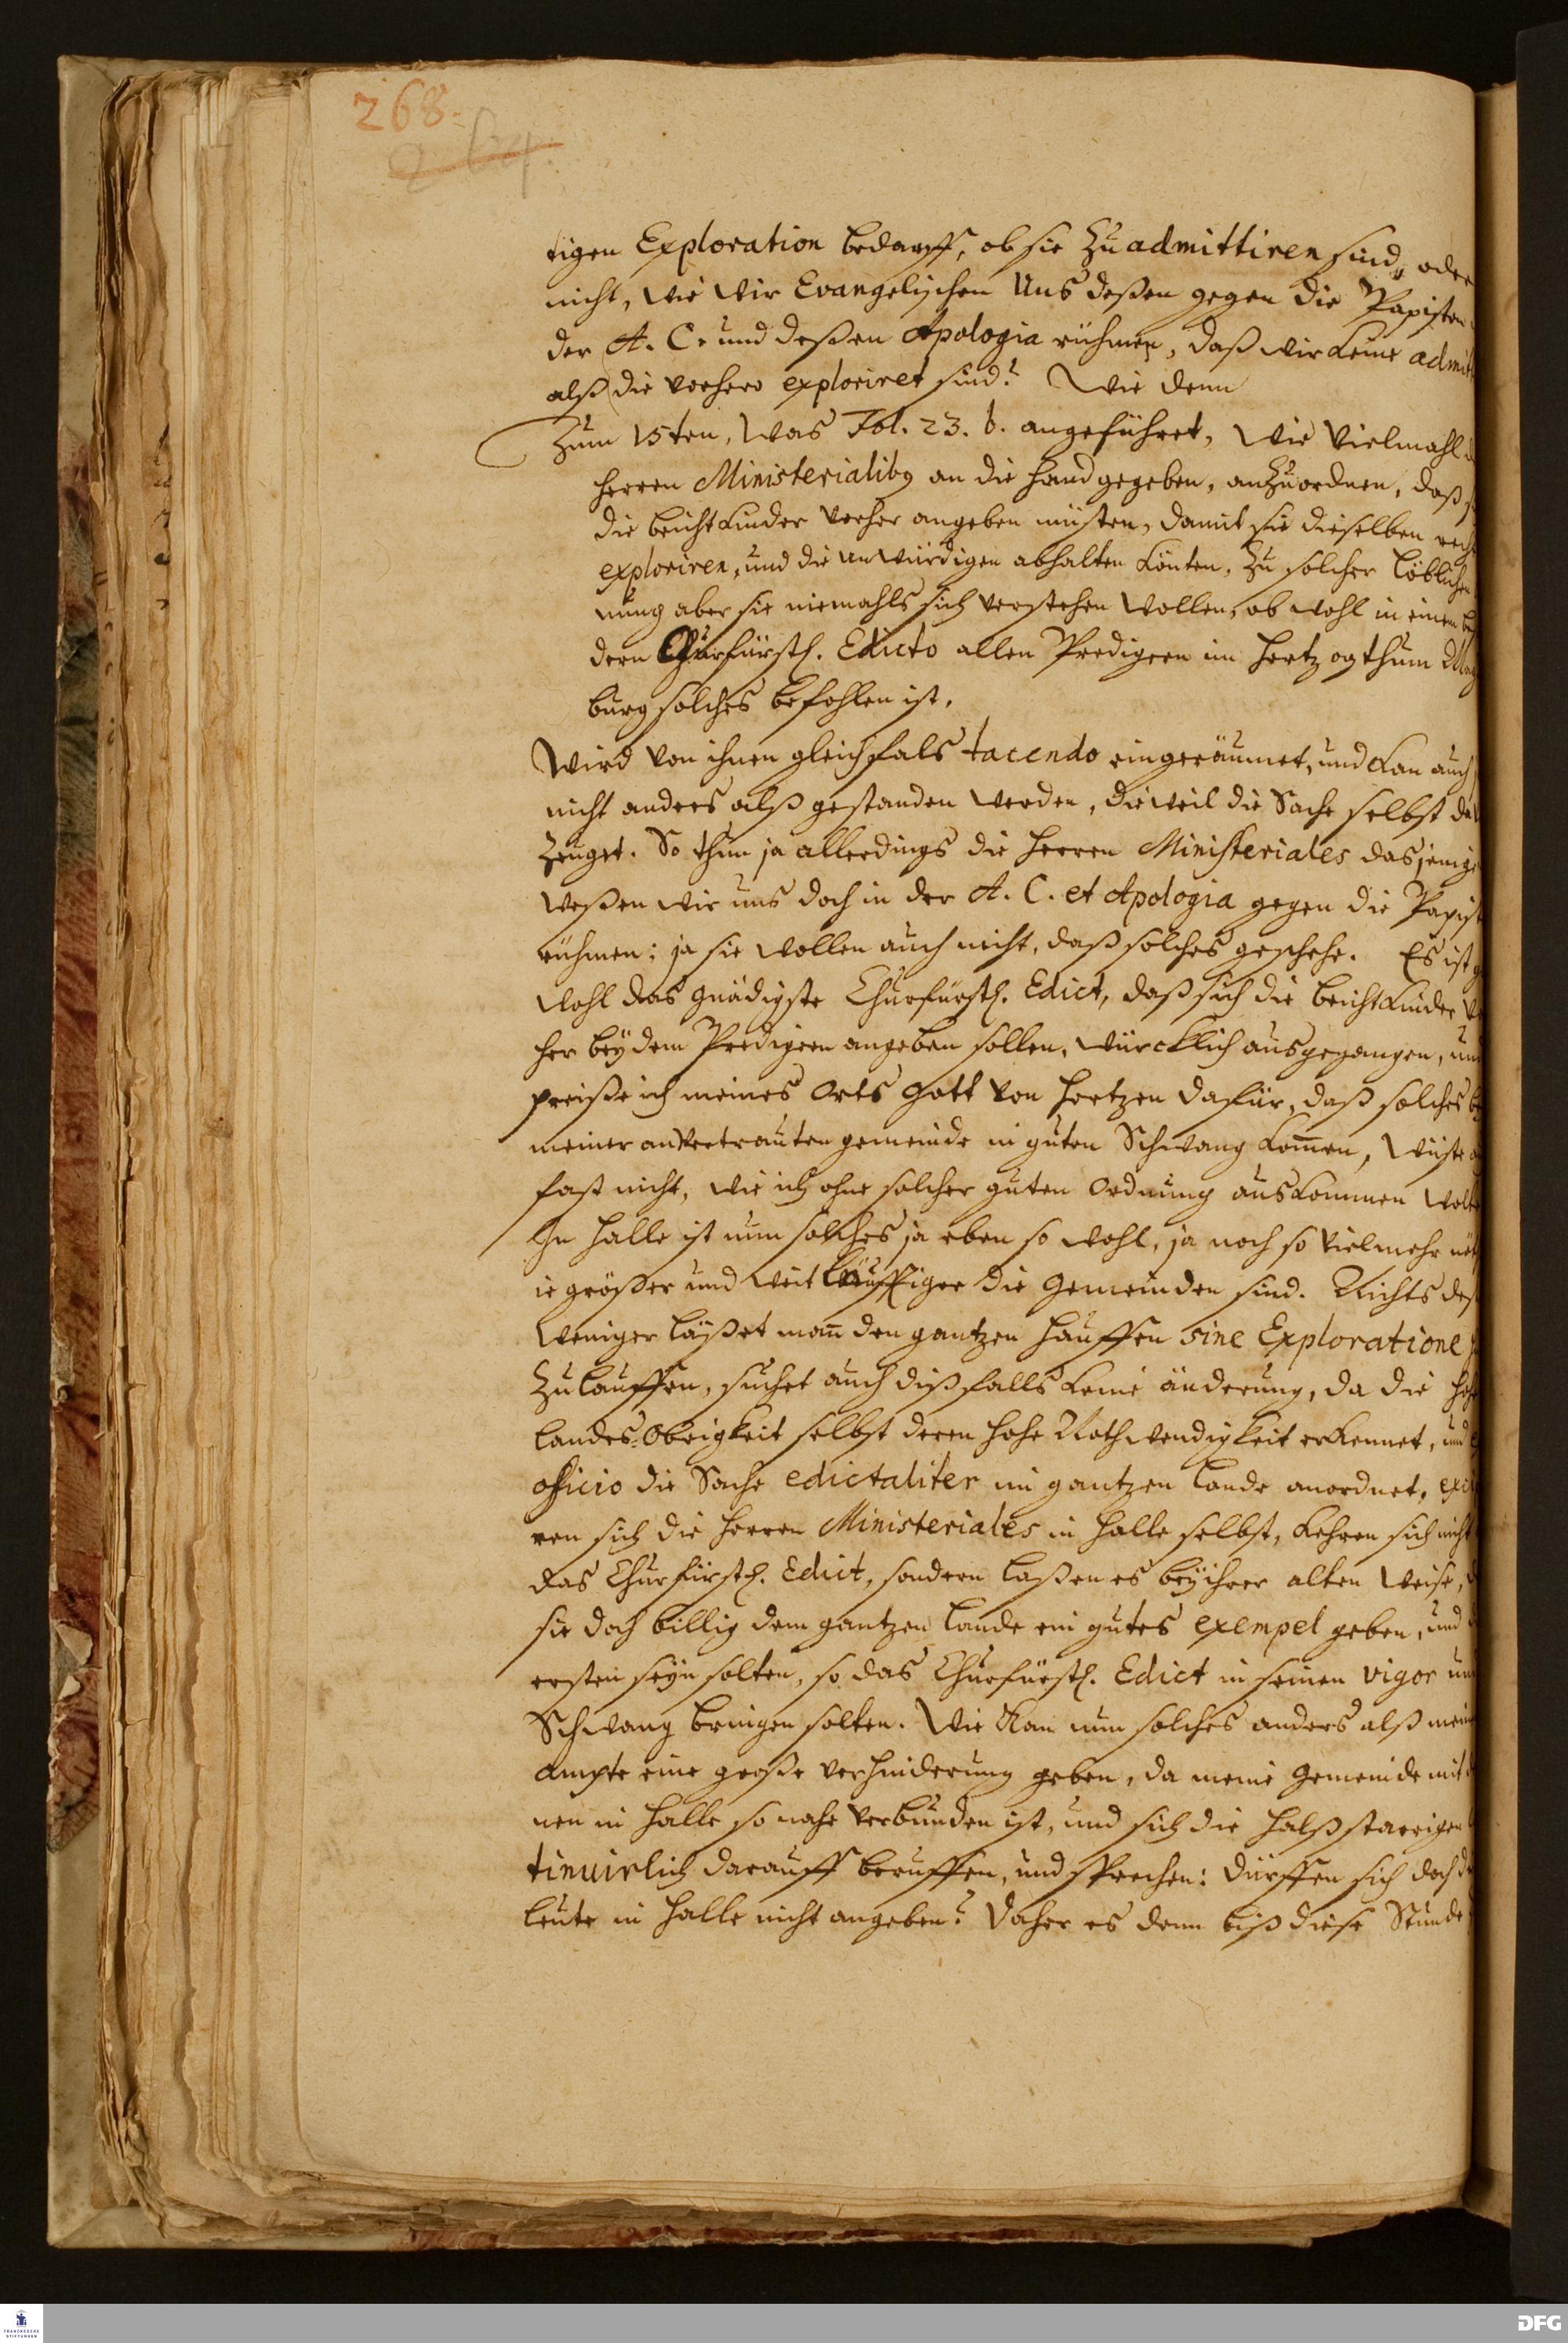 268.
264.
tigen Exploration bedarff, ob sie zu admittiren sind, oder
nicht, wie wir Evangelischen Uns deßen gegen die Papisten
der A. C. und deßen Apologia rühmen, daß wir keine admit
alß die vorhero exploriret sind? Wie denn
Zum 15ten, was Fol. 23. b. angeführet, wie vielmahl
Herren Ministerialibus an die Hand gegeben, anzuordnen, daß
die beichtkinder vorher angeben müsten, damit sie dieselben recht
exploriren, und die unwürdigen abhalten könten, zu solcher löblichen
nung aber sie niemahls sich verstehen wollen, ob wohl in einem
dern Churfürstl. Edicto allen Predigern im Hertzogthum Mag
burg solches befohlen ist.
Wird von ihnen gleichfals tacendo eingeräumet, und kan auch
nicht anders alß gestanden werden, dieweil die Sache selbst da
zeuget. So thun ja allerdings die Herren Ministeriales dasjenige
weßen wir uns doch in der A. C. et Apologia gegen die Papist
rühmen; ja sie wollen auch nicht, daß solches geschehe. Es ist
wohl das gnädigste Churfürstl. Edict, daß sich die beichtkinder
her bey dem Predigern angeben sollen, würcklich ausgegangen, und
preiße ich meines Orts Gott von Hertzen dafür, daß solches
meiner anvertrauten gemeinde in guten Schwang kommen, wüste
fast nicht, wie ich ohne solcher guten Ordnung auskommen wolte
In Halle ist nun solches ja eben so wohl, ja noch so vielmehr
ie größer und weitläufftiger die Gemeinden sind. Nichts des
weniger läßet man den gantzen hauffen sine Exploratione
zulauffen, suchet auch dißfalls keine änderung, da die hohe
Landes-Obrigkeit selbst deren hohe Nothwendigkeit erkennet, und
officio die Sache edictaliter im gantzen Lande anordnet, exi
ren sich die Herren Ministeriales in Halle selbst, kehren sich nicht
das Churfürstl. Edict, sondern laßen es bey ihrer alten Weise,
sie doch billig dem gantzen Lande ein gutes exempel geben, und
ersten seyn solten, so das Churfürstl. Edict in seinen vigor und
Schwang bringen solten. Wie kan nun solches anders alß mein
ampte eine große verhinderung geben, da meine Gemeinde mit
nen in Halle so nahe verbunden ist, und sich die halßstarrigen
tinuirlich darauff beruffen, und sprechen: dürffen sich doch
leute in Halle nicht angeben? Daher es denn biß diese Stunde
FRANCKESCHE STIFTUNGEN
DFG